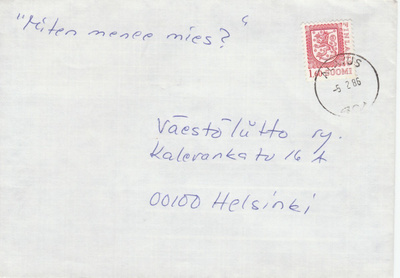 "Miten menee mies?"
1,60 SUOMI
-5. 2 86
Väestöliitto ry.
Kalevankatu 16 A
00100 Helsinki